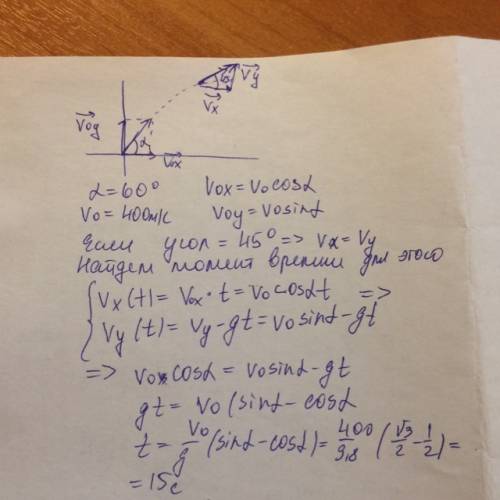 V⃗y
45°
V⃗x
V⃗oy
α
V⃗ox
α=60° Vox=Vocosα
Vo=400м/с Voy=Vosinα
Если угол = 45° => Vx=Vy
Найдем момент времени для этого
{ Vx(t)= Vox·t=Vo cosαt =>
Vy(t)= Vy-gt=Vosinα-gt
=> Vo cosα = Vosinα-gt
gt= Vo(sinα-cosα
t= Vo/g (sinα-cosα)= 400/9,8 (√3/2-1/2)=
=15с